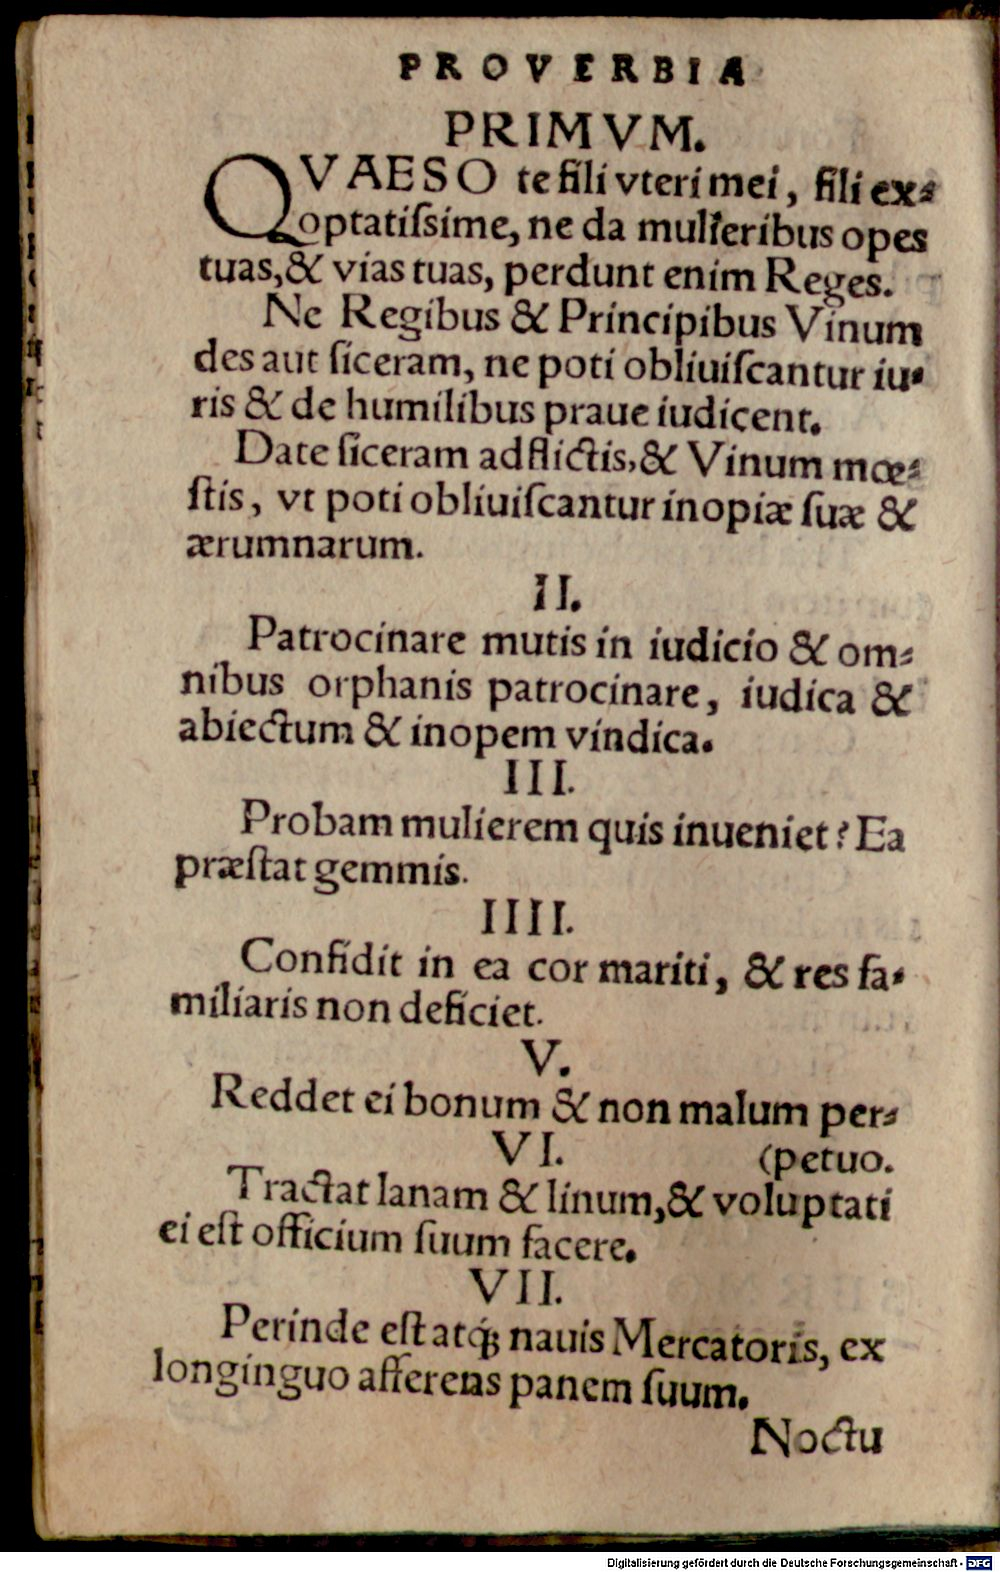 PROVERBIA
PRIMVM.
QVAESO te fili vteri mei, fili ex⸗
optatiſsime, ne da mulieribus opes
tuas, & vias tuas, perdunt enim Reges.
Ne Regibus & Principibus Vinum
des aut ſiceram, ne poti obliuiſcantur iu⸗
ris & de humilibus praue iudicent.
Date ſiceram adflictis, & Vinum mœ⸗
ſtis, vt poti obliuiſcantur inopiæ ſuæ &
ærumnarum.
II.
Patrocinare mutis in iudicio & om⸗
nibus orphanis patrocinare, iudica &
abiectum & inopem vindica.
III.
Probam mulierem quis inueniet? Ea
præſtat gemmis.
IIII.
Confidit in ea cor mariti, & res fa⸗
miliaris non deficiet.
V.
Reddet ei bonum & non malum per⸗
VI. (petuo.
Tractat lanam & linum, & voluptati
ei eſt officium ſuum facere.
VII.
Perinde eſt atq́; nauis Mercatoris, ex
longinguo afferens panem ſuum.
Noctu
Digitalisierung gefördert durch die Deutsche Forschungsgemeinschaft - DFG